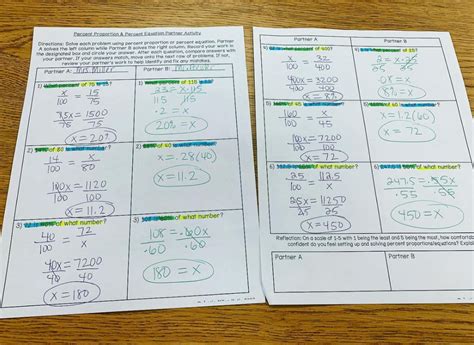 Percent Proportion & Percent Equation Partner Activity
Directions: Solve each problem using percent proportion or percent equation. Partner
A solves the left column while Partner B solves the right column. Record your work in
the designated box and circle your answer. After each question, compare answers with
your partner. If your answers match, move onto the next problem. If not,
review your partner's work to help identify and fix any mistakes.
Partner A: Mrs. Miller
Partner B:
1) What percent of 75 is 15?
x/100 = 15/75
75x = 1500
75 75
x = 20%
1) What percent of 115 is 23?
23 = x · 115
115 115
.2 = x
20% = x
2) 14% of 80 is what number?
14/100 = x/80
100x = 1120
100 100
x = 11.2
2) of 40 is what number?
x = .28(40)
x = 11.2
3) 72 is 40% of what number?
40/100 = 72/x
40x = 7200
40 40
x = 180
3) 108 is 60% of what number?
108 = .60x
.60 .60
180 = x
Partner A
Partner B
4) percent of 400?
x/100 = 32/400
400x = 3200
400 400
x = 8%
4) percent of 25?
2 = x · 25
25 25
.08 = x
8% = x
5) 160% of 45 is what number?
160/100 = x/45
100x = 7200
100 100
x = 72
5) of 60 is what number?
x = 1.2(60)
x = 72
6) of what number?
25/100 = 112.5/x
25x = 11250
25 25
x = 450
6) of what number?
247.5 = .55x
.55 .55
450 = x
Reflection: On a scale of 1-5 with 1 being the least and 5 being the most, how
confident do you feel setting up and solving percent proportions/equations?
Partner A
Partner B